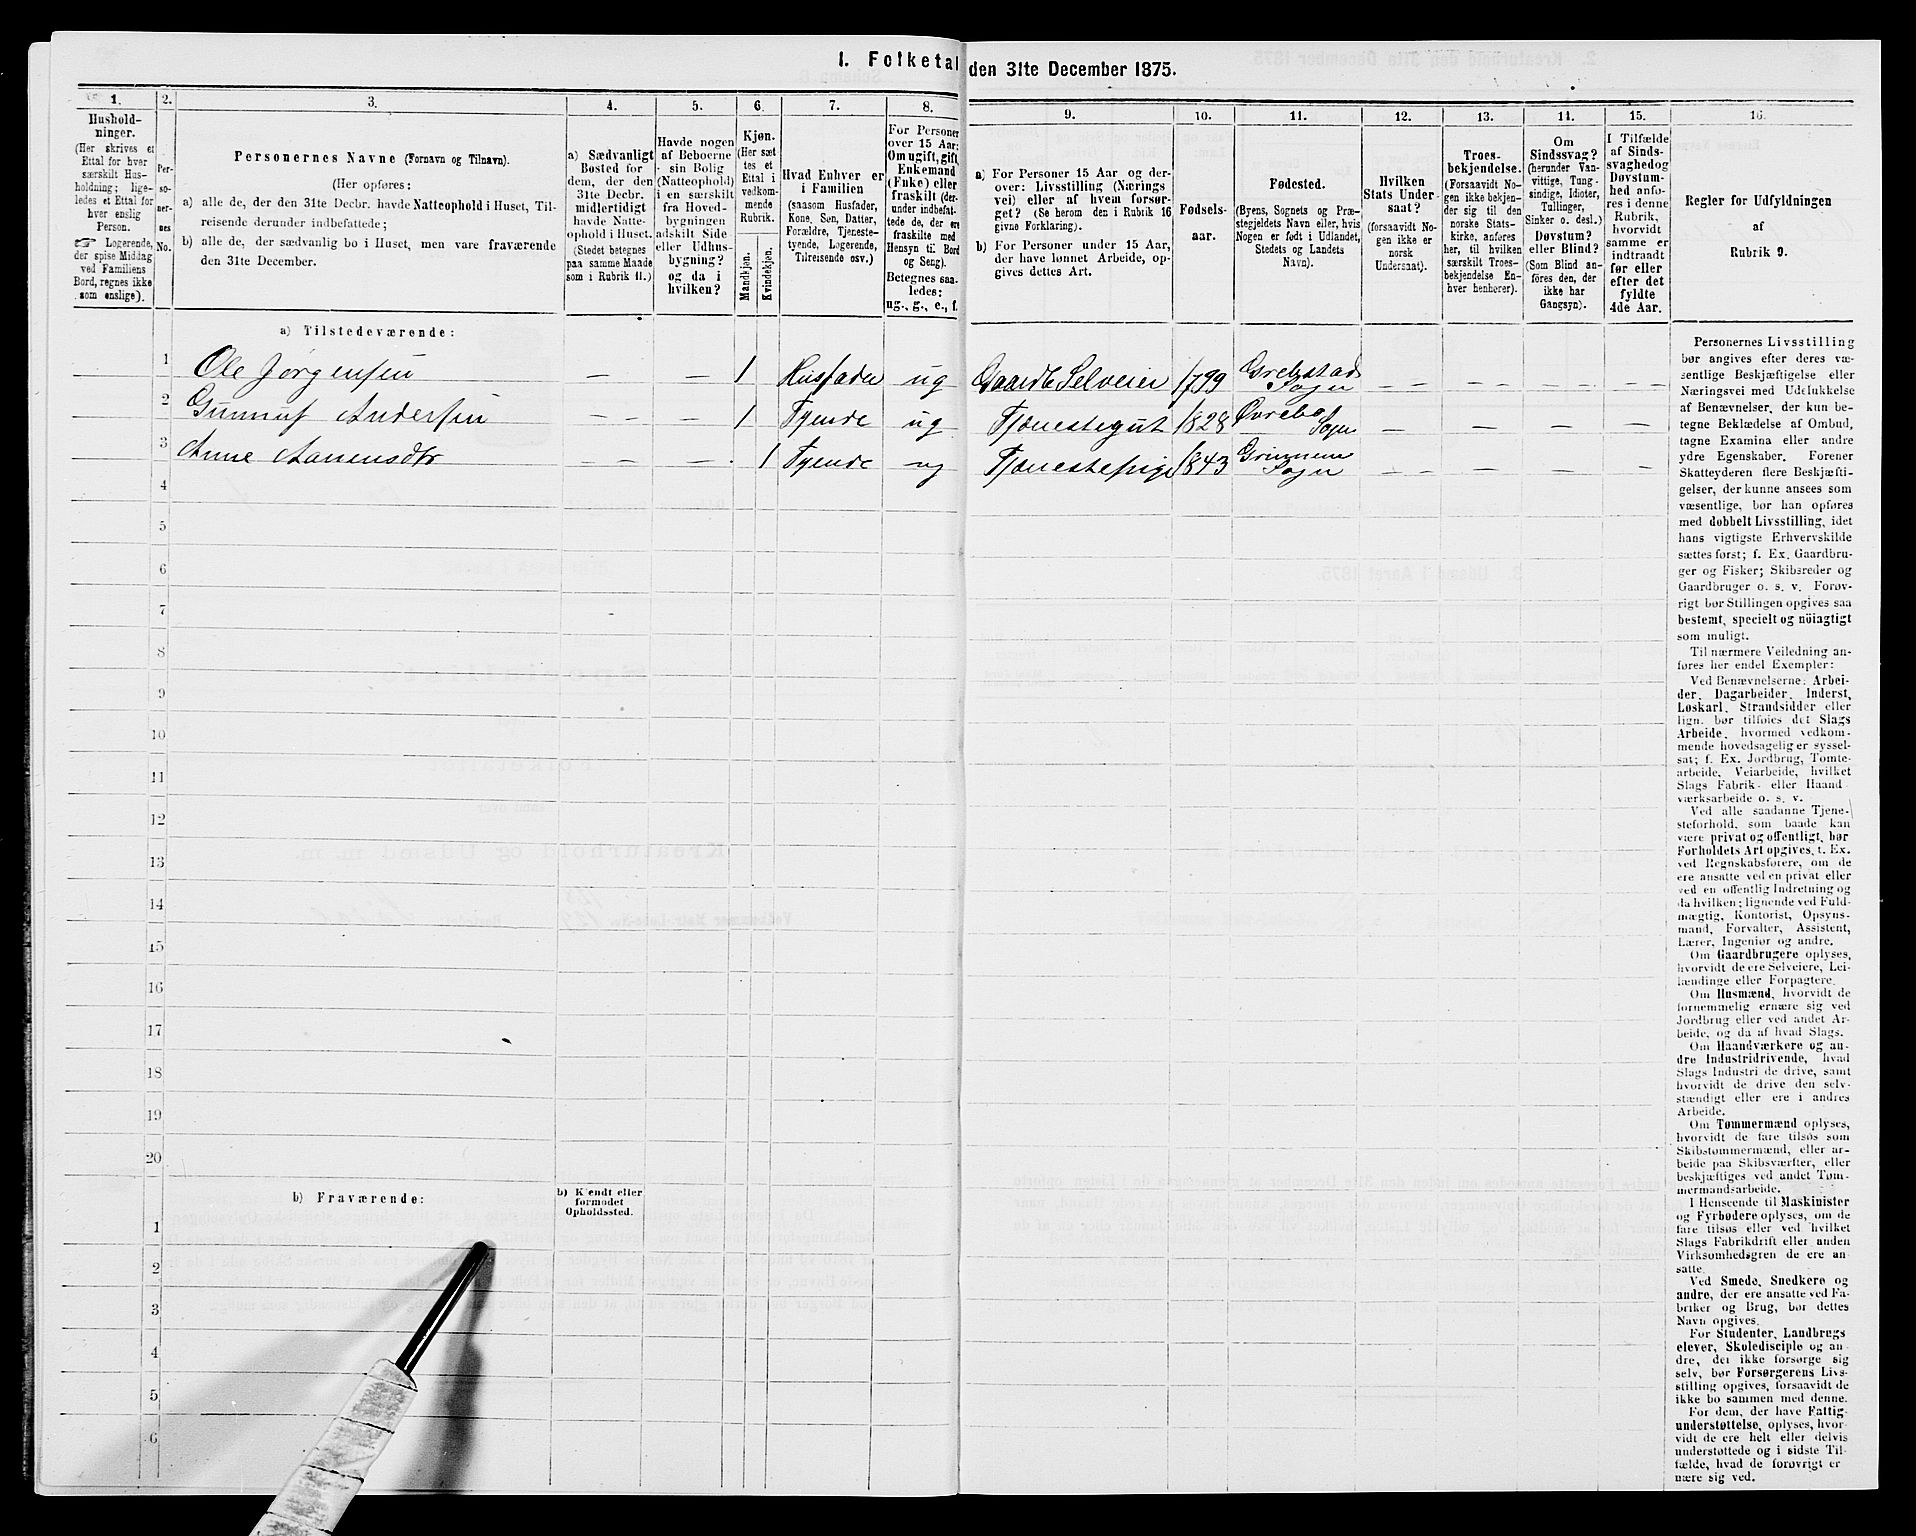 1. Folketal den 31te December 1875.
1.
Hushold-
ninger.
(Her skrives et
Ettal for hver
særskilt Hus-
holdning; lige-
ledes et Ettal for
hver enslig
Person.
☞ Logerende,
der spise Middag
ved Familiens
Bord, regnes ikke
som enslige).
2.
Per-
so-
ner-
nes
No.
3.
Personernes Navne (Fornavn og Tilnavn).
(Her opføres:
a) alle de, der den 31te Decbr. havde Natteophold i Huset, Til-
reisende derunder indbefattede;
b) alle de, der sædvanlig bo i Huset, men vare fraværende
den 31te December.
4.
a) Sædvanligt
Bosted for
dem, der den
31te Decbr.
midlertidigt
havde Natte-
ophold i Huset.
(Stedet betegnes
paa samme Maade
som i Rubrik 11.)
5.
Havde nogen
af Beboerne
sin Bolig
(Natteophold)
i en særskilt
fra Hoved-
bygningen
adskilt Side
eller Udhus-
bygning?
og da i
hvilken?
6.
Kjøn.
(Her sæt
tes et
Ettal i
vedkom-
mende
Rubrik.
Mandkjøn.
Kvindekjøn.
7.
Hvad Enhver er
i Familien
(saasom Husfader,
Kone, Søn, Datter,
Forældre, Tjeneste-
tyende, Logerende,
Tilreisende osv.)
8.
For Personer
over 15 Aar:
Om ugift, gift,
Enkemand
(Enke) eller
fraskilt (der-
under indbefat-
tede de, der ere
fraskilte med
Hensyn til Bord
og Seng).
Betegnes saa-
ledes:
ug., g., e., f.
9.
a) For Personer 15 Aar og der-
over: Livsstilling (Nærings
vei) eller af hvem forsør-
get? (Se herom den i Rubrik 16
givne Forklaring).
b) For Personer under 15 Aar,
der have lønnet Arbeide, op-
gives dettes Art.
10.
Fødsels-
aar.
11.
Fødested.
(Byens, Sognets og Præ-
stegjeldets Navn eller, hvis
Nogen er født i Udlandet,
Stedets og Landets
Navn).
12.
Hvilken
Stats Under-
saat?
(forsaavidt No-
gen ikke er
norsk
Undersaat).
13.
Troes-
bekjendelse.
(Forsaavidt No-
gen ikke bekjen-
der sig til den
norske Stats-
kirke, anføres
her, til hvilken
særskilt Troes-
bekjendelse En-
hver henhører).
14.
Om
Sindssvag?
(herunder Van-
vittige, Tung-
sindige, Idioter,
Tullinger,
Sinker o. desl.)
Døvstum?
eller Blind?
(Som Blind an-
føres den, der
ikke har
Gangsyn).
15.
I Tilfælde
af Sinds-
svaghed og
Døvstum-
hed anfø-
res i denne
Rubrik,
hvorvidt
samme er
indtraadt
før eller
efter det
fyldte
4de Aar.
16.
Regler for Udfyldningen
af
Rubrik 9.
a) Tilstedeværende:
1 Ole Jørgensen — — 1 Husfader ug Gaardb Selveier 1799 Grebstad Sogn — — — —
2 Gunnuf Andersen — — 1 Tyende ug Tjænestegut 1828 Øvrebø Sogn — — — —
3 Anne Aanensdtr — — 1 Tyende ug Tjænestepige 1843 Grimnem Sogn — — — —
4
5
6
7
8
9
10
11
12
13
14
15
16
17
18
19
20
b) Fraværende:
b) Kjendt eller
formodet
Opholdssted.
1
2
3
4
5
6
Personernes Livsstilling
bør angives efter deres væ-
sentlige Beskjæftigelse eller
Næringsvei med Udelukkelse
af Benævnelser, der kun be-
tegne Beklædelse af Ombud,
tagne Examina eller andre
ydre Egenskaber. Forener
Skatteyderen flere Beskjæfti-
gelser, der kunne ansees som
væsentlige, bør han opføres
med dobbelt Livsstilling, idet
hans vigtigste Erhvervskilde
sættes først; f. Ex. Gaardbru-
ger og Fisker; Skibsreder og
Gaardbruger o. s. v. Forøv-
rigt bør Stillingen opgives saa
bestemt, specielt og nöiagtigt
som muligt.
Til nærmere Veiledning an-
føres her endel Exempler:
Ved Benævnelserne: Arbei-
der, Dagarbeider, Inderst,
Løskarl, Strandsidder eller
lign. bør tilføies det Slags
Arbeide, hvormed vedkom-
mende hovedsagelig er syssel-
sat; f. Ex. Jordbrug, Tomte-
arbeide, Veiarbeide, hvilket
Slags Fabrik- eller Haand
værksarbeide o. s. v.
Ved alle saadanne Tjene-
steforhold, som baade kan
være privat og offentligt, bør
Forholdets Art opgives, f. Ex.
ved Regnskabsførere, om de
ere ansatte ved en privat eller
ved en offentlig Indretning og
da hvilken; lignende ved Fuld-
mægtig, Kontorist, Opsyns-
mand, Forvalter, Assistent,
Lærer, Ingeniør og andre.
Om Gaardbrugere oplyses,
hvorvidt de ere Selveiere, Lei-
lændinge eller Forpagtere.
Om Husmænd, hvorvidt de
fornemmelig ernære sig ved
Jordbrug eller ved andet Ar-
beide, og da af hvad Slags.
Om Haandværkere og an-
dre Industridrivende, hvad
Slags Industri de drive, samt
hvorvidt de drive den selv-
stændigt eller ere i andres
Arbeide.
Om Tømmermænd oplyses,
hvorvidt de fare tilsøs som
Skibstømmermænd, eller ar-
beide paa Skibsværfter, eller
beskjæftiges ved andet Tøm-
mermandsarbeide.
I Henseende til Maskinister
og Fyrbødere oplyses, om de
fare tilsøs eller ved hvilket
Slags Fabrikdrift eller anden
Virksomhedsgren de ere an-
satte.
Ved Smede, Snedkere og
andre, der ere ansatte ved Fa-
briker og Brug, bør dettes
Navn opgives.
For Studenter, Landbrugs
elever, Skoledisciple og an-
dre, der ikke forsørge sig
selv, bør Forsørgerens Livs-
stilling opgives, forsaavidt de
ikke bo sammen med denne.
For dem, der have Fattig
understøttelse, oplyses, hvor-
vidt de ere helt eller delvis
understøttede og i sidste Til-
fælde, hvad de forøvrigt er
nære sig ved.